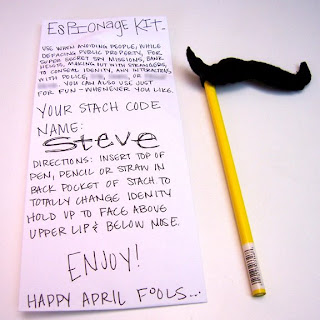 ESPIONAGE KIT-
USE WHEN AVOIDING PEOPLE, WHILE
DEFACING PUBLIC PROPERTY, FOR
SUPER SECRET SPY MISSIONS, BANK
HEISTS, MAKING OUT WITH STRANGERS,
TO CONSEAL IDENITY, ANY INTERACTIONS
WITH POLICE, OR
YOU CAN ALSO USE JUST
FOR FUN-WHENEVER YOU LIKE.
YOUR STACH CODE
NAME:
Steve
DIRECTIONS: INSERT TOP OF
PEN, PENCIL OR STRAW IN
BACK POCKET OF STACH TO
TOTALLY CHANGE IDENITY
HOLD UP TO FACE ABOVE
UPPER LIP & BELOW NOSE.
ENJOY!
HAPPY APRIL FOOLS...